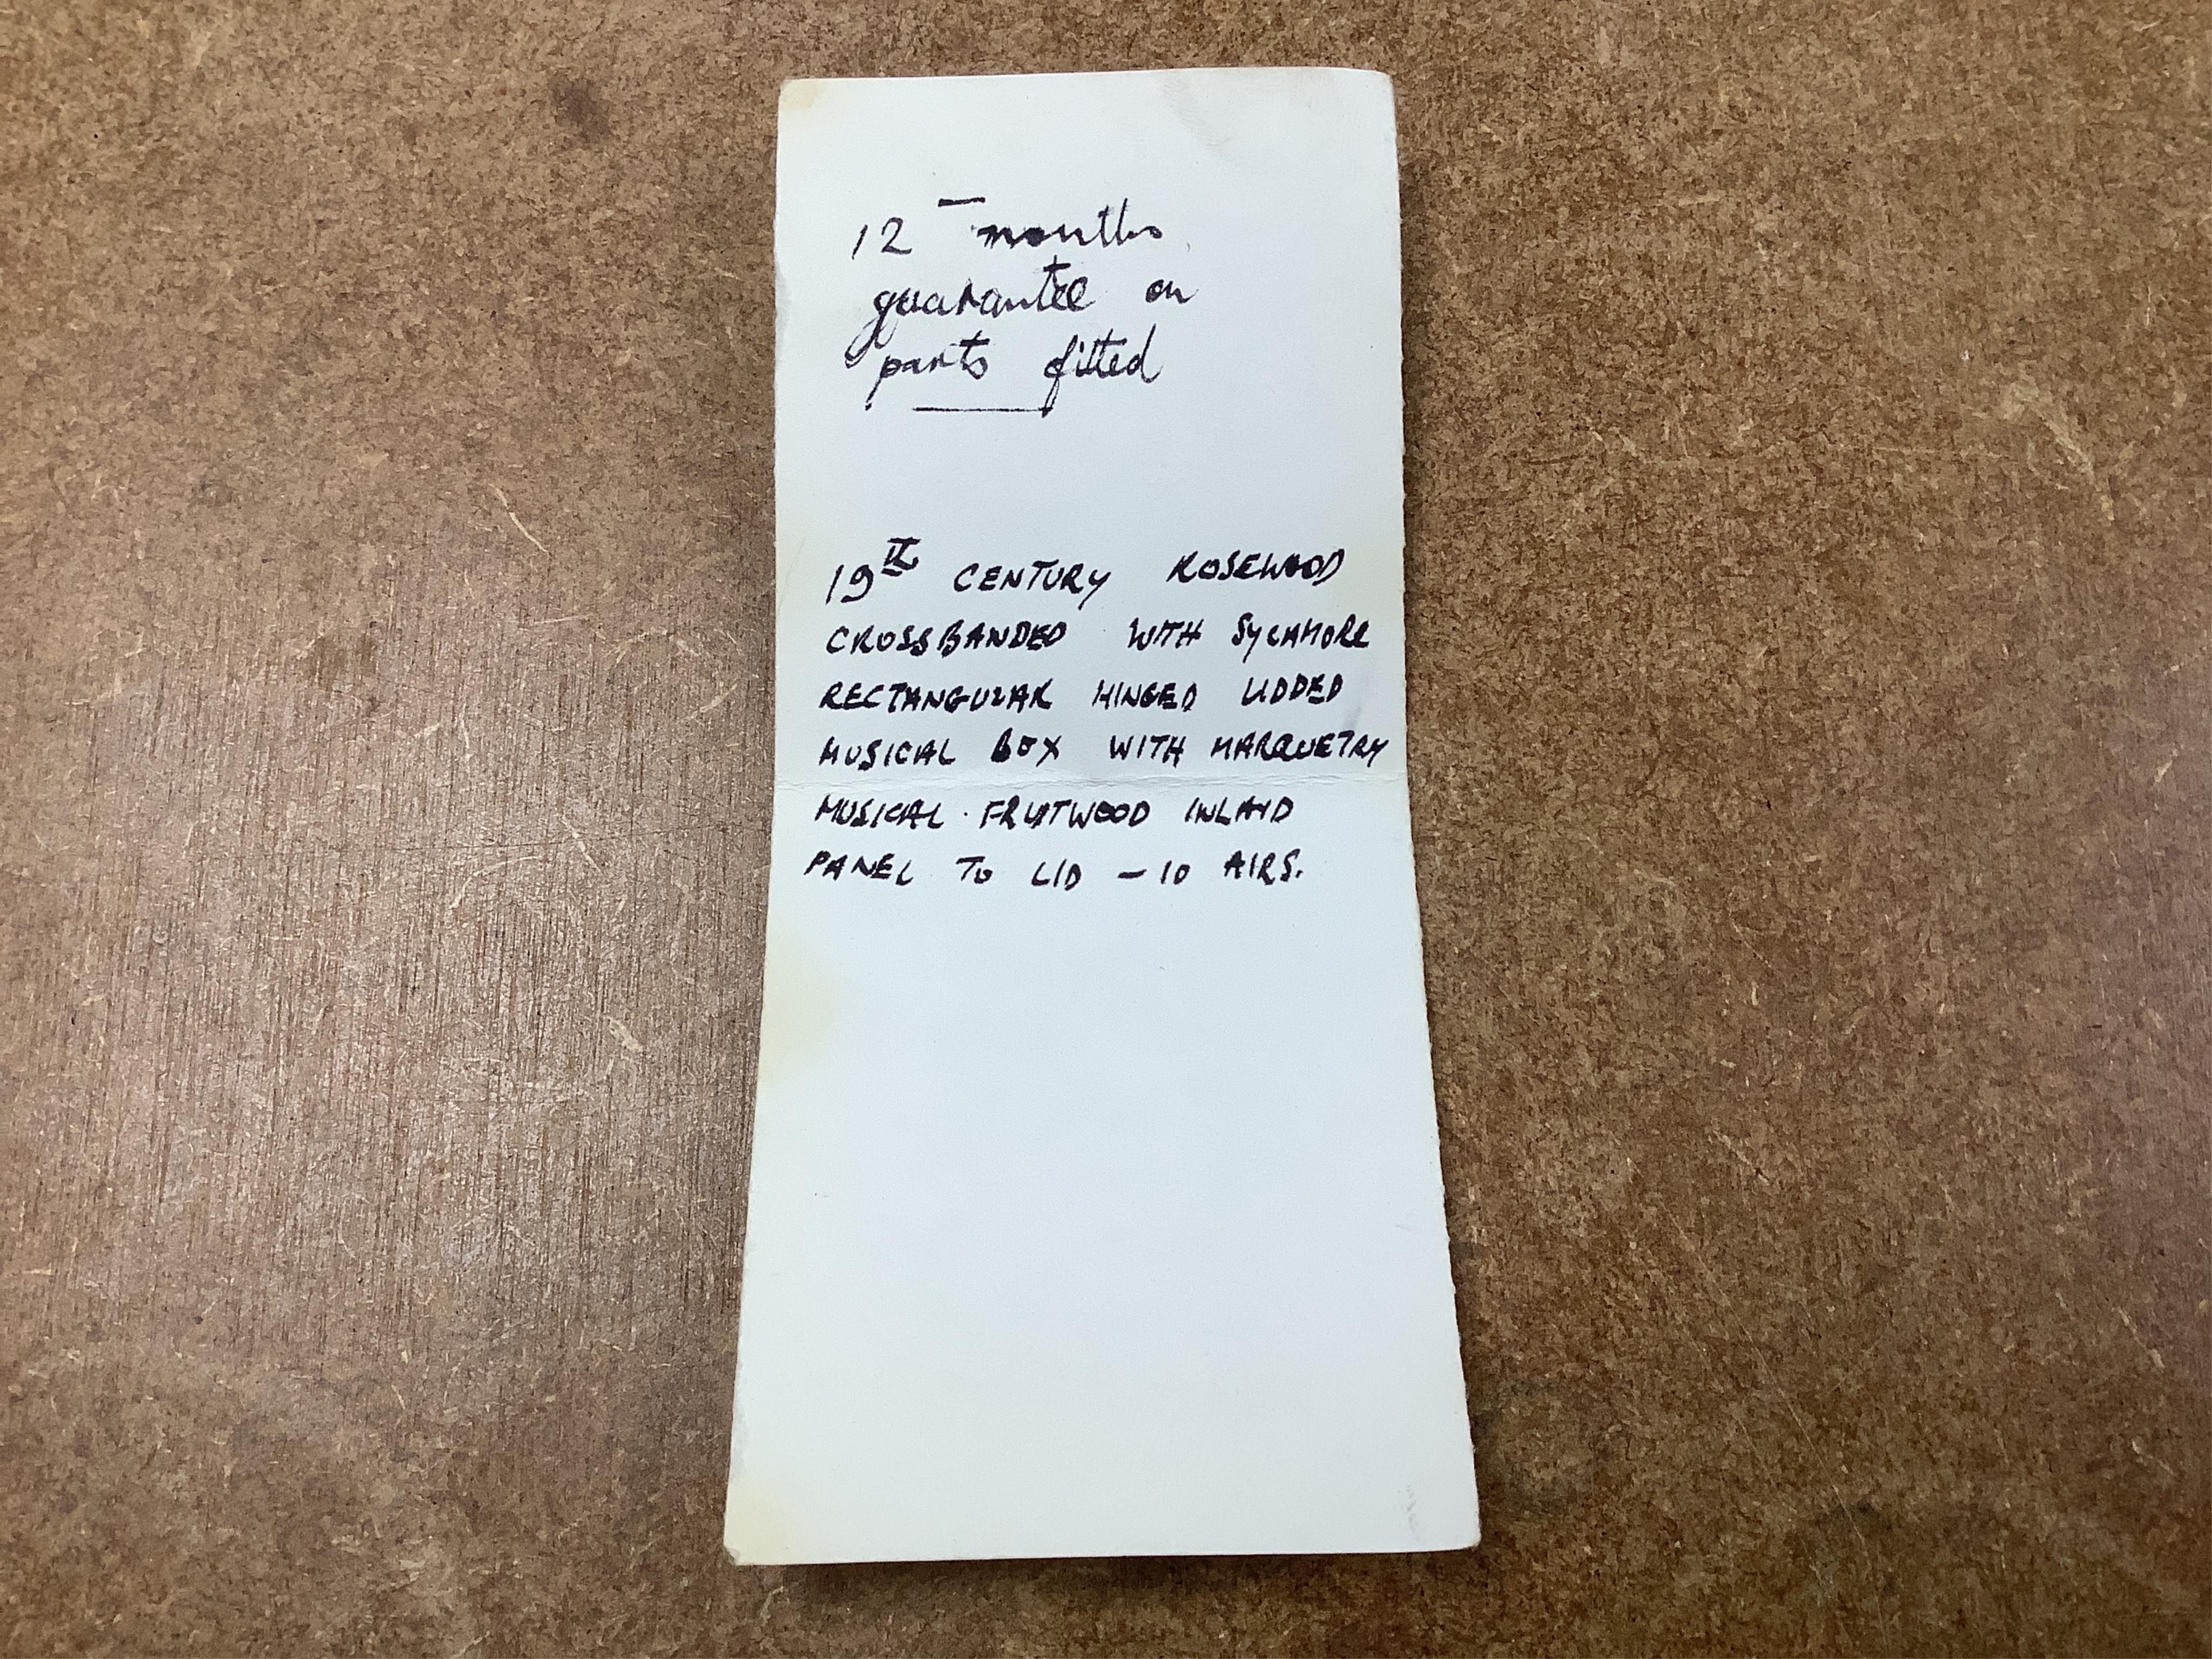 12 months
guarantee on
parts fitted
19th CENTURY ROSEWOOD
CROSSBANDED WITH SYCAMORE
RECTANGULAR HINGED LIDDED
MUSICAL BOX WITH MARQUETRY
MUSICAL · FRUITWOOD INLAID
PANEL TO LID - 10 AIRS.